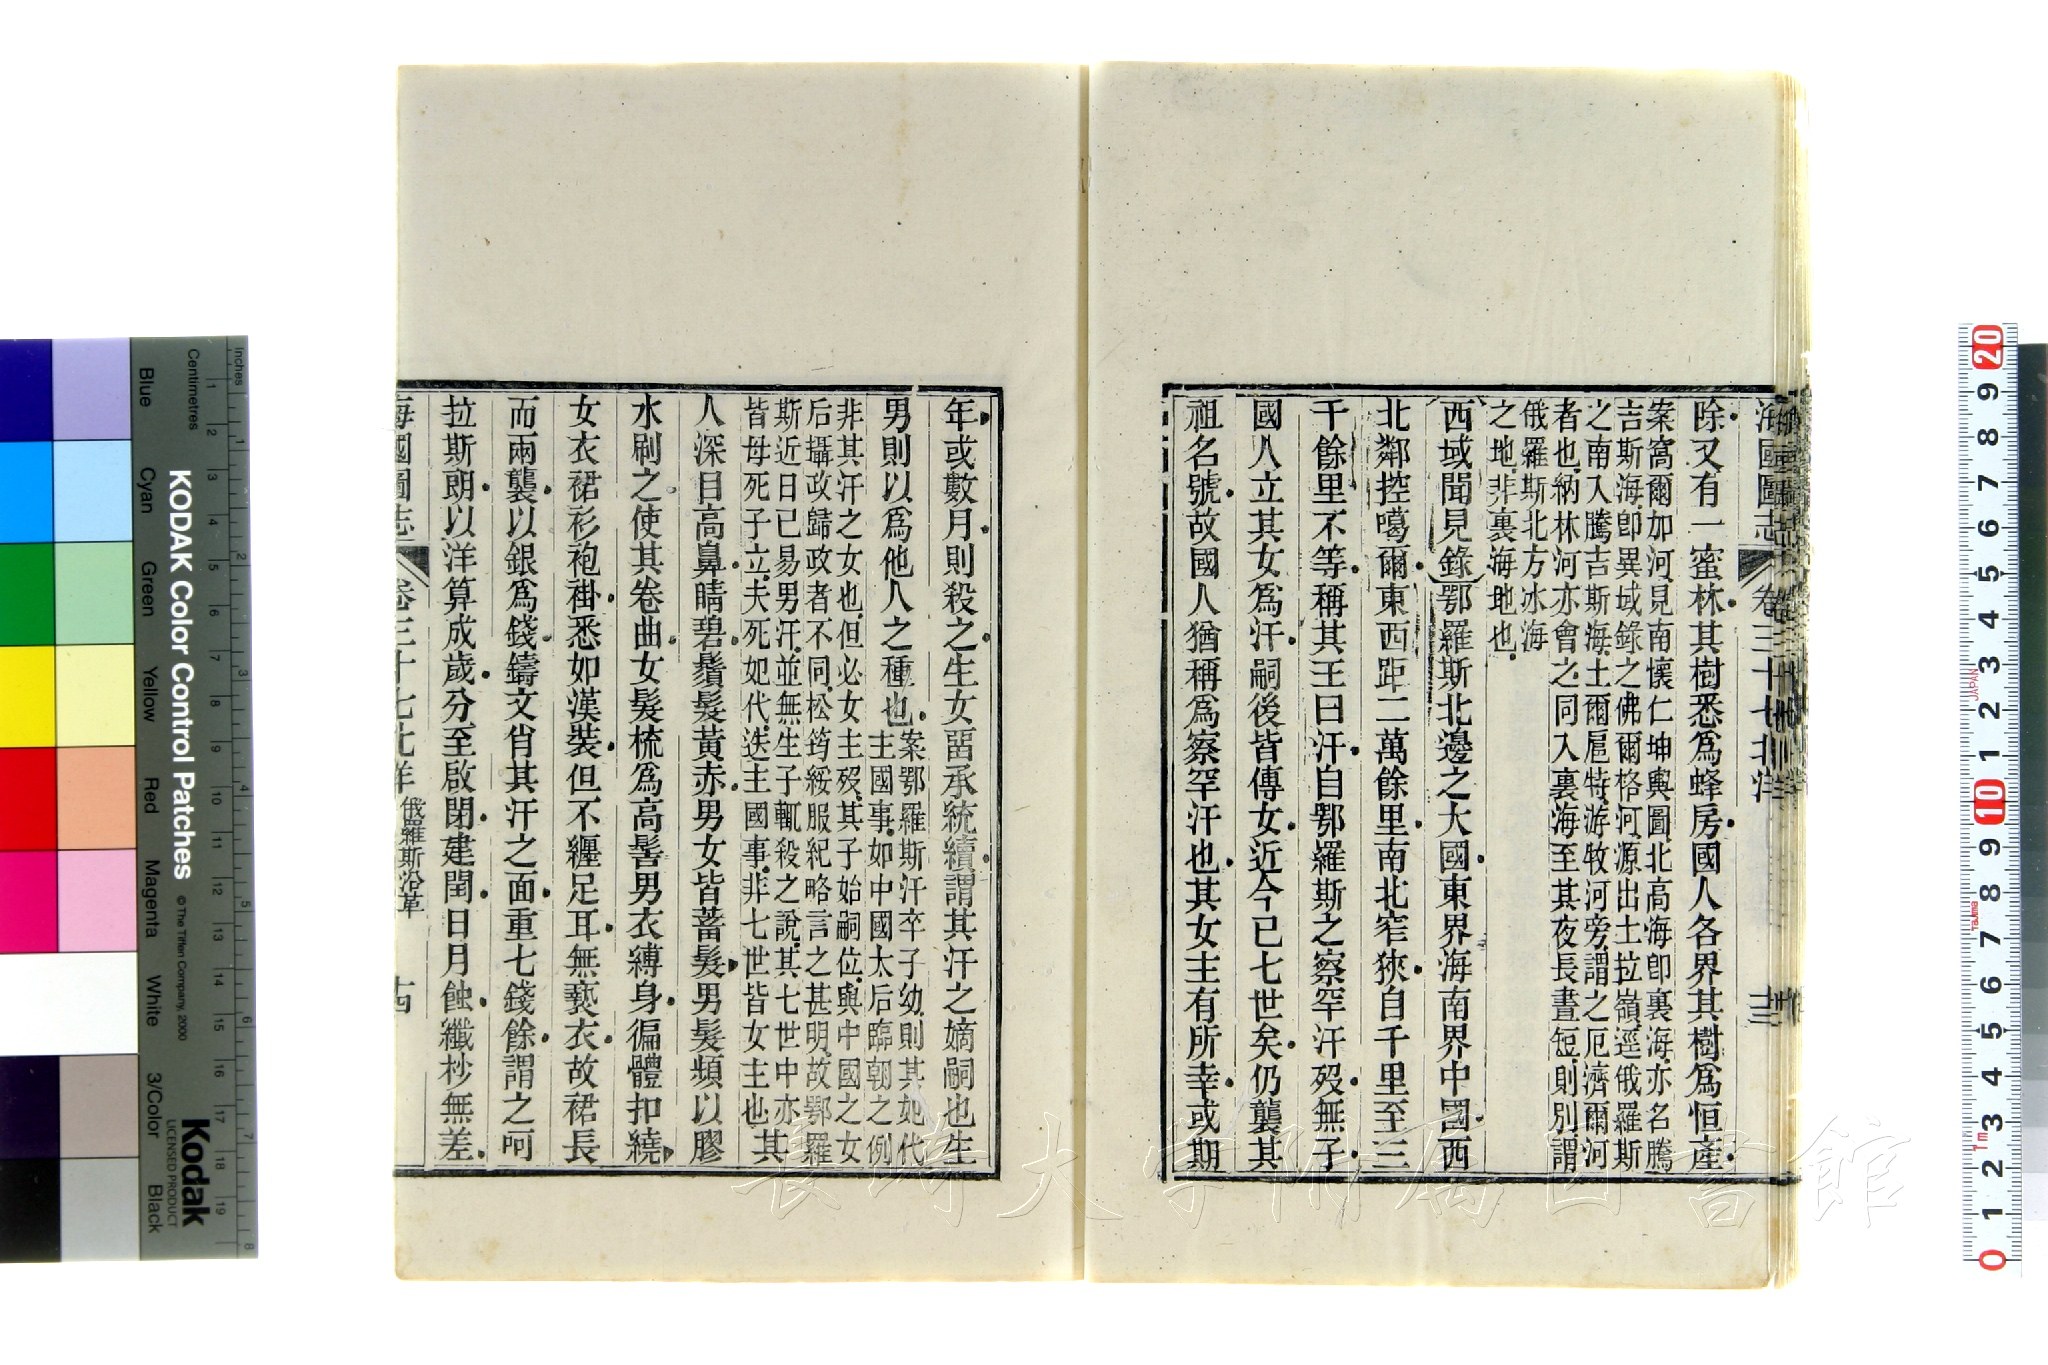 海國圖志 卷三十七 北洋 十三
除又有一蜜林其樹悉爲蜂房國人各界其樹爲恒產
案窩爾加河見南懷仁坤輿圖北高海卽裏海亦名騰
吉斯海卽異域錄之佛爾格河源出土拉嶺逕俄羅斯
之南入騰吉斯海土爾扈特游牧河旁謂之厄濟爾河
者也納林河亦會之同入裏海至其夜長晝短則別謂
俄羅斯北方冰海
之地非裏海地也
西域聞見錄鄂羅斯北邊之大國東界海南界中國西
北鄰控噶爾東西距二萬餘里南北窄狹自千里至三
千餘里不等稱其王曰汗自鄂羅斯之察罕汗歿無子
國人立其女爲汗嗣後皆傳女近今已七世矣仍襲其
祖名號故國人猶稱爲察罕汗也其女主有所幸或期
年或數月則殺之生女畱承統續謂其汗之嫡嗣也生
男則以爲他人之種也案鄂羅斯汗卒子幼則其妃代
主國事如中國太后臨朝之例
非其汗之女也但必女主歿其子始嗣位與中國之女
后攝政歸政者不同松筠綏服紀略言之甚明故鄂羅
斯近日已易男汗並無生子輒殺之說其七世中亦
皆母死子立夫死妃代迭主國事非七世皆女主也其
人深目高鼻睛碧鬚髮黃赤男女皆蓄髮男髮頻以膠
水刷之使其卷曲女髮梳爲高髻男衣縛身徧體扣繞
女衣裙衫袍褂悉如漢裝但不纏足耳無褻衣故裙長
而兩襲以銀爲錢鑄文肖其汗之面重七錢餘謂之呵
拉斯朗以洋算成歲分至啟閉建閏日月蝕纖杪無差
海國圖志 卷三十七 北洋 俄羅斯沿革 十四
KODAK Color Control Patches
© The Tiffen Company, 2000
Kodak
LICENSED PRODUCT
Inches
Centimetres
Blue Cyan Green Yellow Red Magenta White 3/Color Black
長崎大学附属図書館